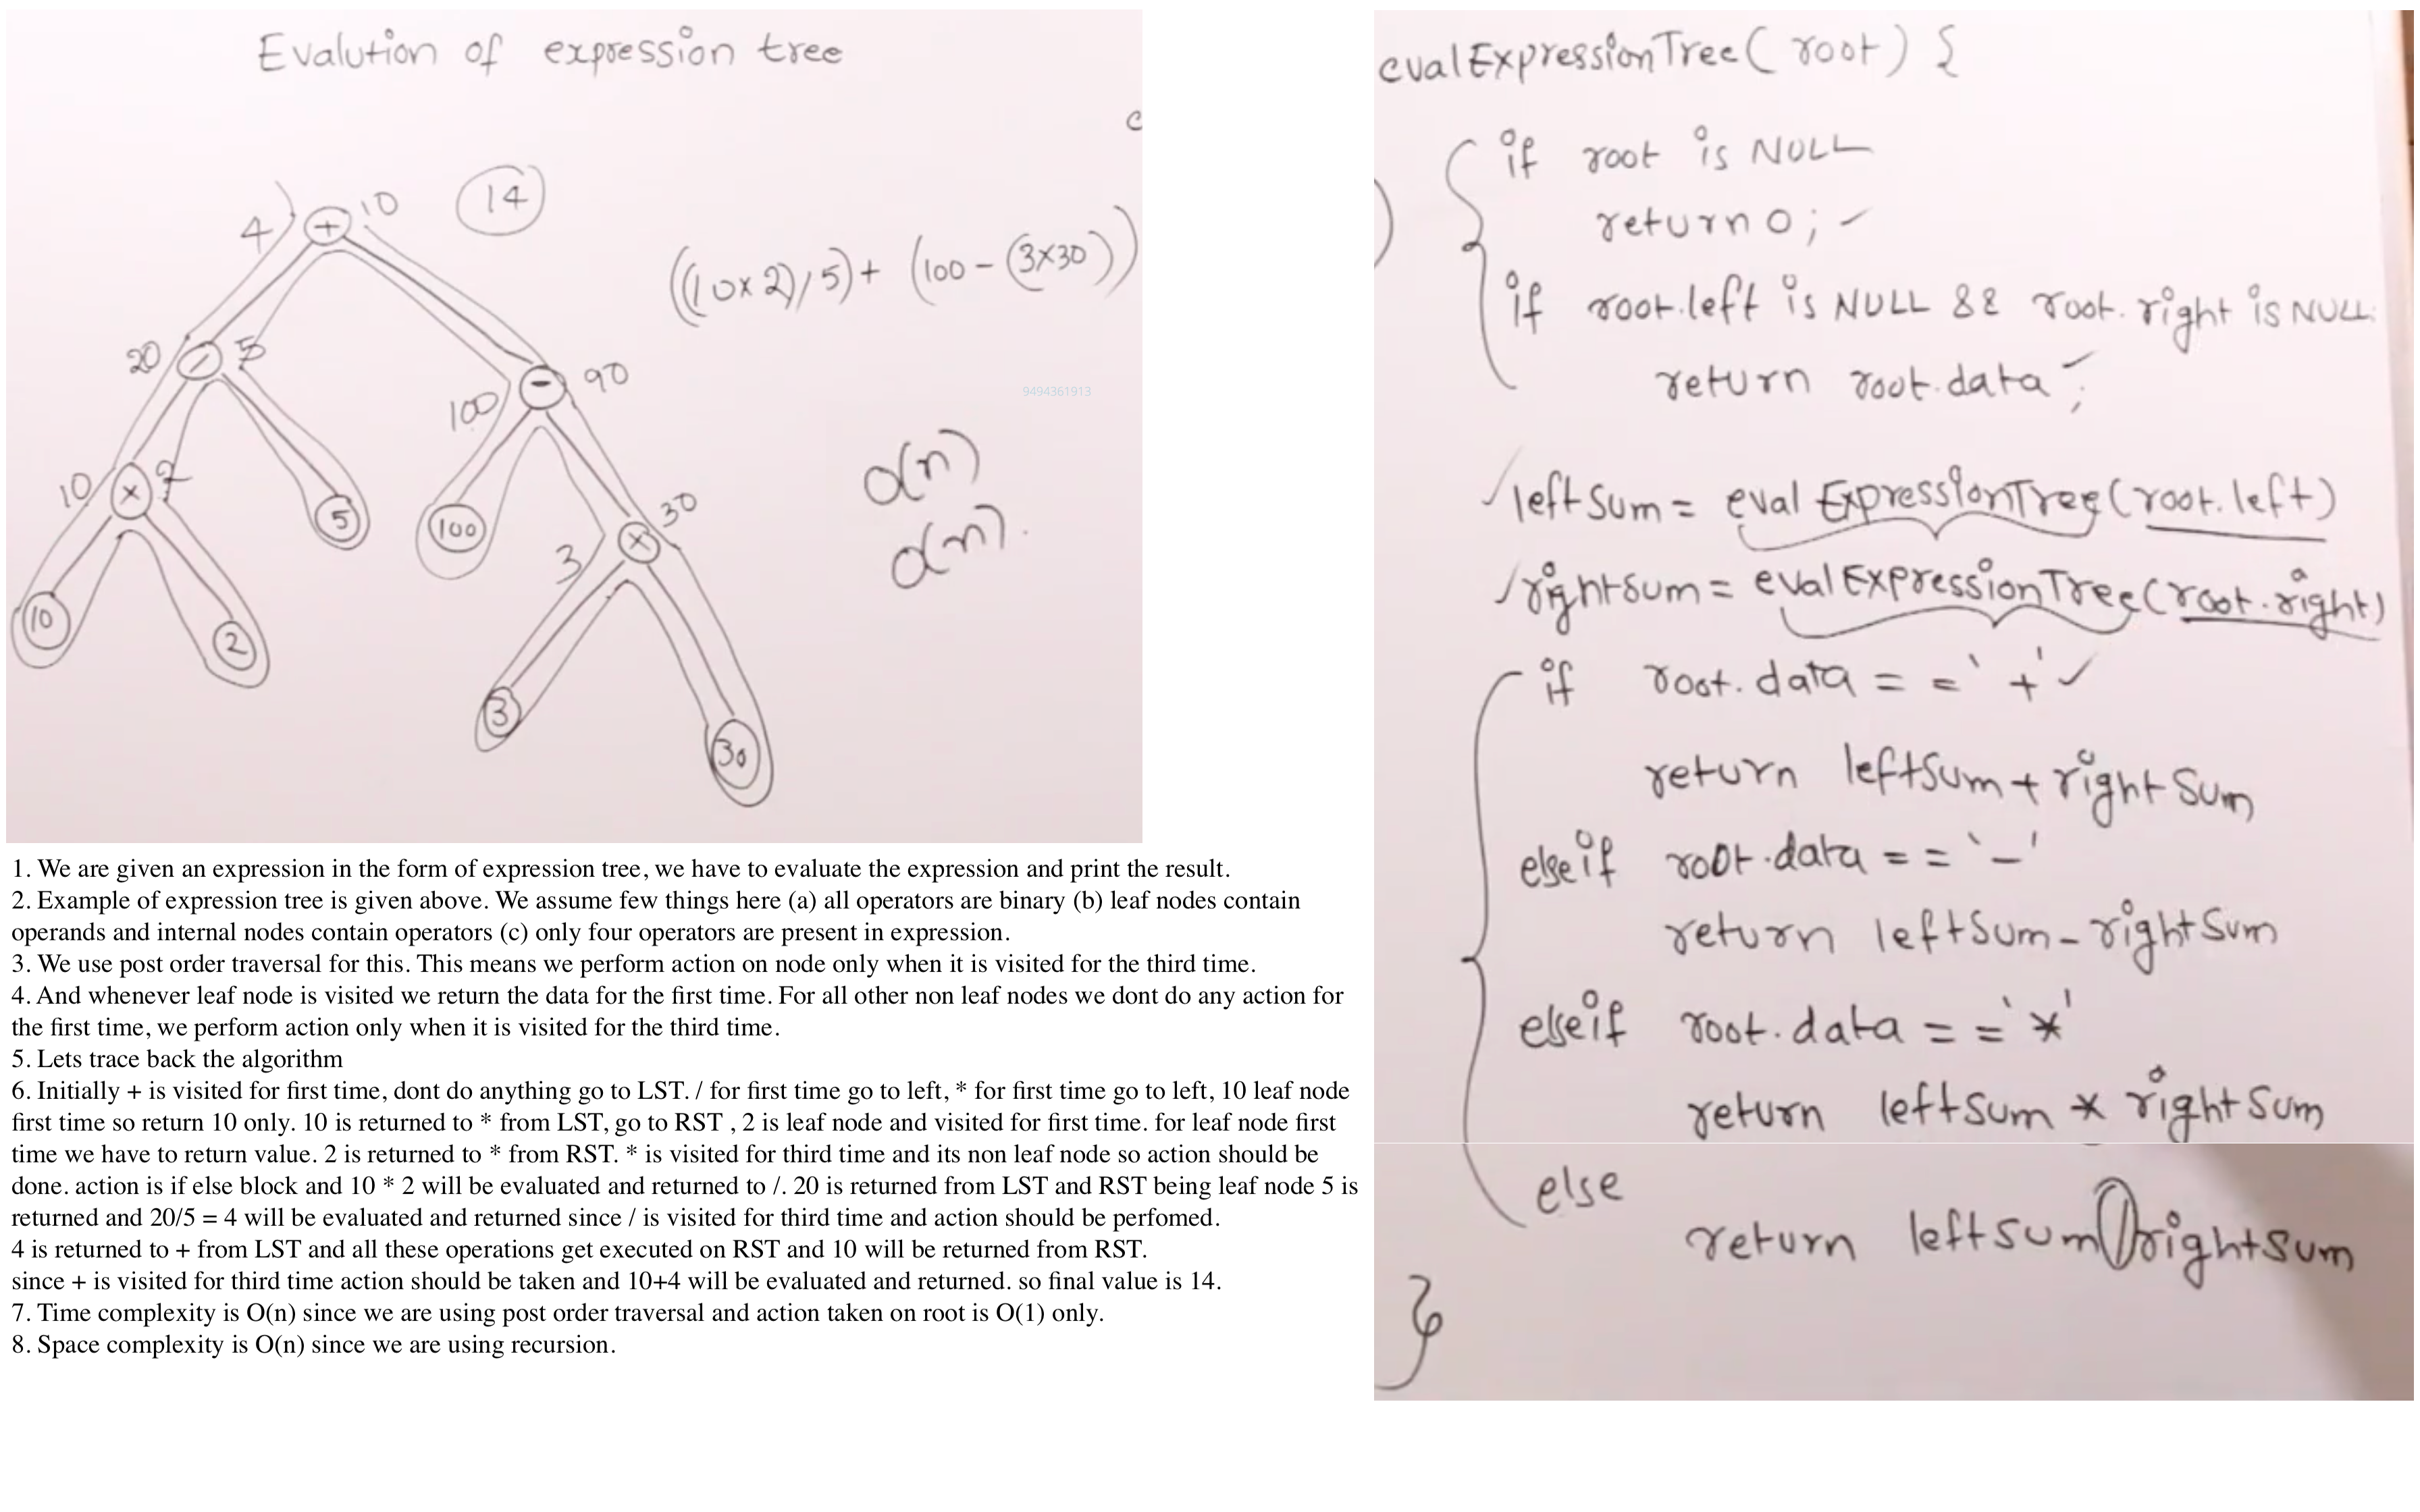 Evalution of expression tree
c
4 + 10 14
((10x2)/5)+ (100-(3x30))
20 / 5
- 90
100
9494361913
10 x 2
5
100
x 30
3
O(n)
O(n).
10
2
3
30
1. We are given an expression in the form of expression tree, we have to evaluate the expression and print the result.
2. Example of expression tree is given above. We assume few things here (a) all operators are binary (b) leaf nodes contain
operands and internal nodes contain operators (c) only four operators are present in expression.
3. We use post order traversal for this. This means we perform action on node only when it is visited for the third time.
4. And whenever leaf node is visited we return the data for the first time. For all other non leaf nodes we dont do any action for
the first time, we perform action only when it is visited for the third time.
5. Lets trace back the algorithm
6. Initially + is visited for first time, dont do anything go to LST. / for first time go to left, * for first time go to left, 10 leaf node
first time so return 10 only. 10 is returned to * from LST, go to RST , 2 is leaf node and visited for first time. for leaf node first
time we have to return value. 2 is returned to * from RST. * is visited for third time and its non leaf node so action should be
done. action is if else block and 10 * 2 will be evaluated and returned to /. 20 is returned from LST and RST being leaf node 5 is
returned and 20/5 = 4 will be evaluated and returned since / is visited for third time and action should be perfomed.
4 is returned to + from LST and all these operations get executed on RST and 10 will be returned from RST.
since + is visited for third time action should be taken and 10+4 will be evaluated and returned. so final value is 14.
7. Time complexity is O(n) since we are using post order traversal and action taken on root is O(1) only.
8. Space complexity is O(n) since we are using recursion.
evalExpressionTree( root) {
if root is NULL
return 0;
if root.left is NULL && root.right is NULL.
return root.data;
leftSum = eval ExpressionTree(root.left)
rightsum = evalExpressionTree(root.right)
if root.data == '+'
return leftsum + rightSum
elseif root.data == '-'
return leftSum - rightSum
elseif root.data == '*'
return leftsum * rightSum
else
return leftsum / rightsum
}